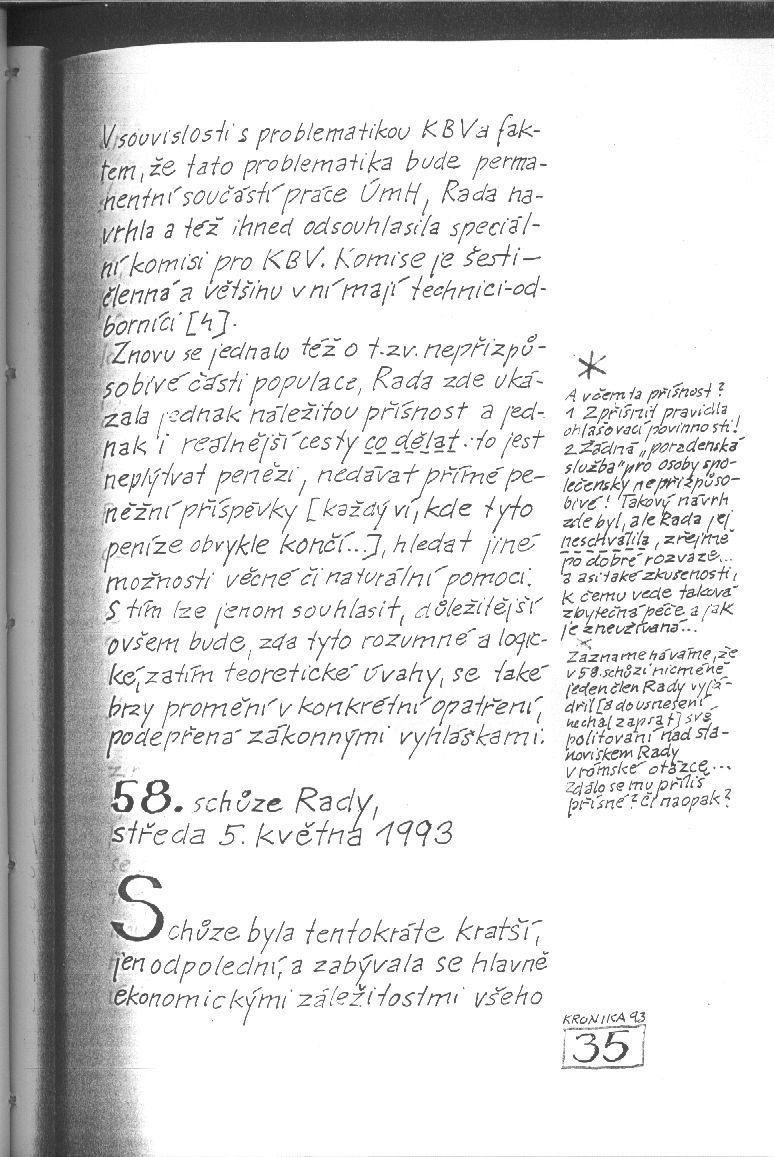 V souvislosti s problematikou KBV a fak-
tem, že tato problematika bude perma-
nentní součástí práce ÚmH, Rada na-
vrhla a též ihned odsouhlasila speciál-
ní komisi pro KBV. Komise je šesti-
členná a většinu v ní mají technici-od-
borníci [4].
Znovu se jednalo též o t.zv. nepřizpů-
sobivé části populace, Rada zde uká-
zala jednak náležitou přísnost a jed-
nak i reálnější cesty co dělat: to jest
neplýtvat penězi, nedávat přímé pe-
něžní příspěvky [každý ví, kde tyto
peníze obvykle končí...], hledat jiné
možnosti věcné či naturální pomoci.
S tím lze jenom souhlasit, důležitější
ovšem bude, zda tyto rozumné a logic-
ké, zatím teoretické úvahy, se také
brzy promění v konkrétní opatření,
podepřená zákonnými vyhláškami.
58. schůze Rady,
středa 5. května 1993
Schůze byla tentokráte kratší,
jen odpolední, a zabývala se hlavně
ekonomickými záležitostmi všeho
*
A v čem ta přísnost?
1 Zpřísnit pravidla
ohlašovací povinnosti!
2 Žádná „poradenská
služba" pro osoby spo-
lečensky nepřizpůso-
bivé! Takový návrh
zde byl, ale Rada jej
neschválila, zřejmě
po dobré rozvaze...
a asi také zkušenosti,
k čemu vede taková
zbytečná péče a jak
je zneužívaná...
*
Zaznamenáváme, že
v 58. schůzi nicméně
jeden člen Rady vyjá-
dřil [a do usnesení
nechal zapsat] své
politování nad sta-
noviskem Rady
v rómské otázce...
Zdálo se mu příliš
přísné? či naopak?
KRONIKA 93
35